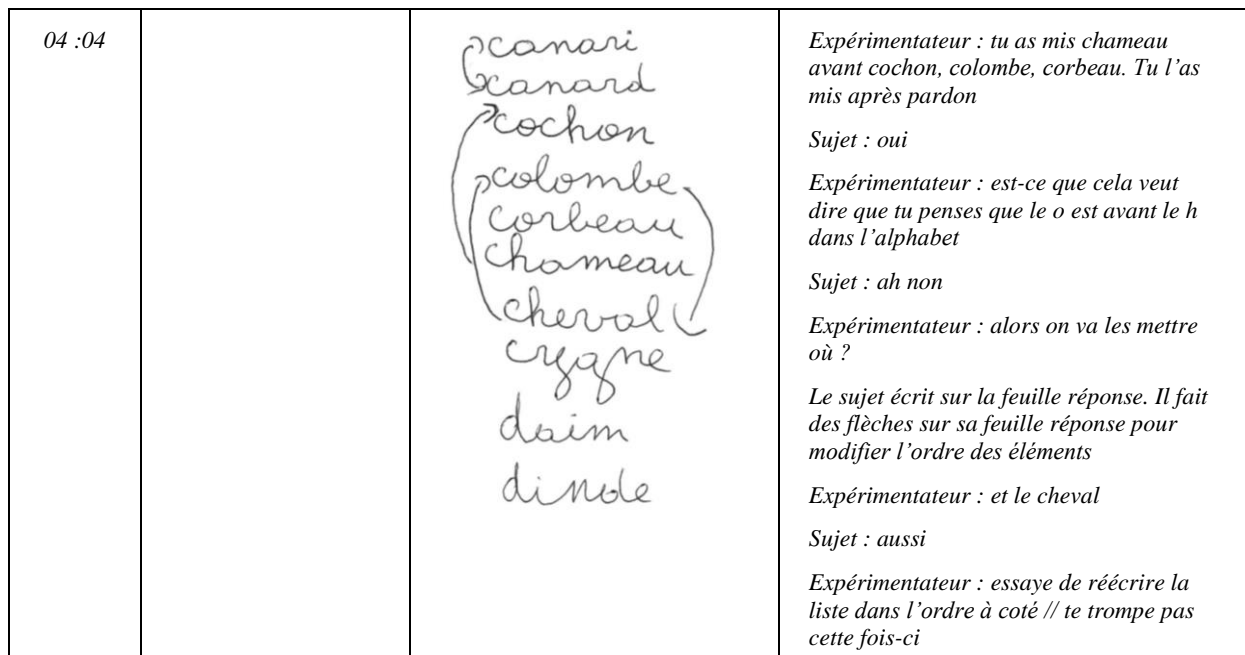 04 :04
canari
canard
cochon
colombe
corbeau
chameau
cheval
cygne
daim
dinde
Expérimentateur : tu as mis chameau
avant cochon, colombe, corbeau. Tu l’as
mis après pardon
Sujet : oui
Expérimentateur : est-ce que cela veut
dire que tu penses que le o est avant le h
dans l’alphabet
Sujet : ah non
Expérimentateur : alors on va les mettre
où ?
Le sujet écrit sur la feuille réponse. Il fait
des flèches sur sa feuille réponse pour
modifier l’ordre des éléments
Expérimentateur : et le cheval
Sujet : aussi
Expérimentateur : essaye de réécrire la
liste dans l’ordre à coté // te trompe pas
cette fois-ci